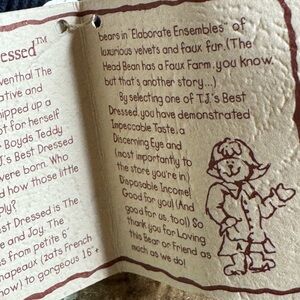 ressed™
venthal The
ative and
hipped up a
ot for herself
Boyds Teddy
J.'s Best Dressed
were born. Who
d how those little
ply?
st Dressed is The
e and Joy. The
s from petite 6"
hapeaux (zats French
now) to gorgeous 16"+
bears in "Elaborate Ensembles" of
luxurious velvets and faux fur. (The
Head Bean has a Faux Farm, you know,
but that's another story...)
By selecting one of T.J.'s Best
Dressed, you have demonstrated
Impeccable Taste, a
Discerning Eye and
(most importantly to
the store you're in)
Disposable Income!
Good for you! (And
good for us, too!) So
thank you for Loving
this Bear or Friend as
much as we do!